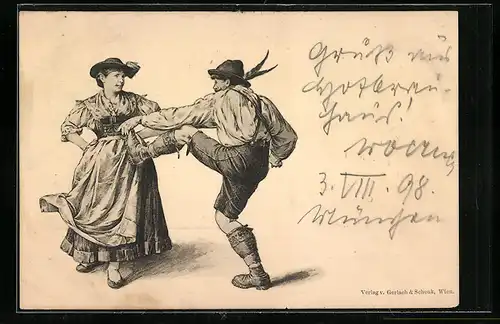 Gruß aus
Hofbräu-
haus!
3. VIII. 98.
München
Verlag v. Gerlach & Schenk, Wien.